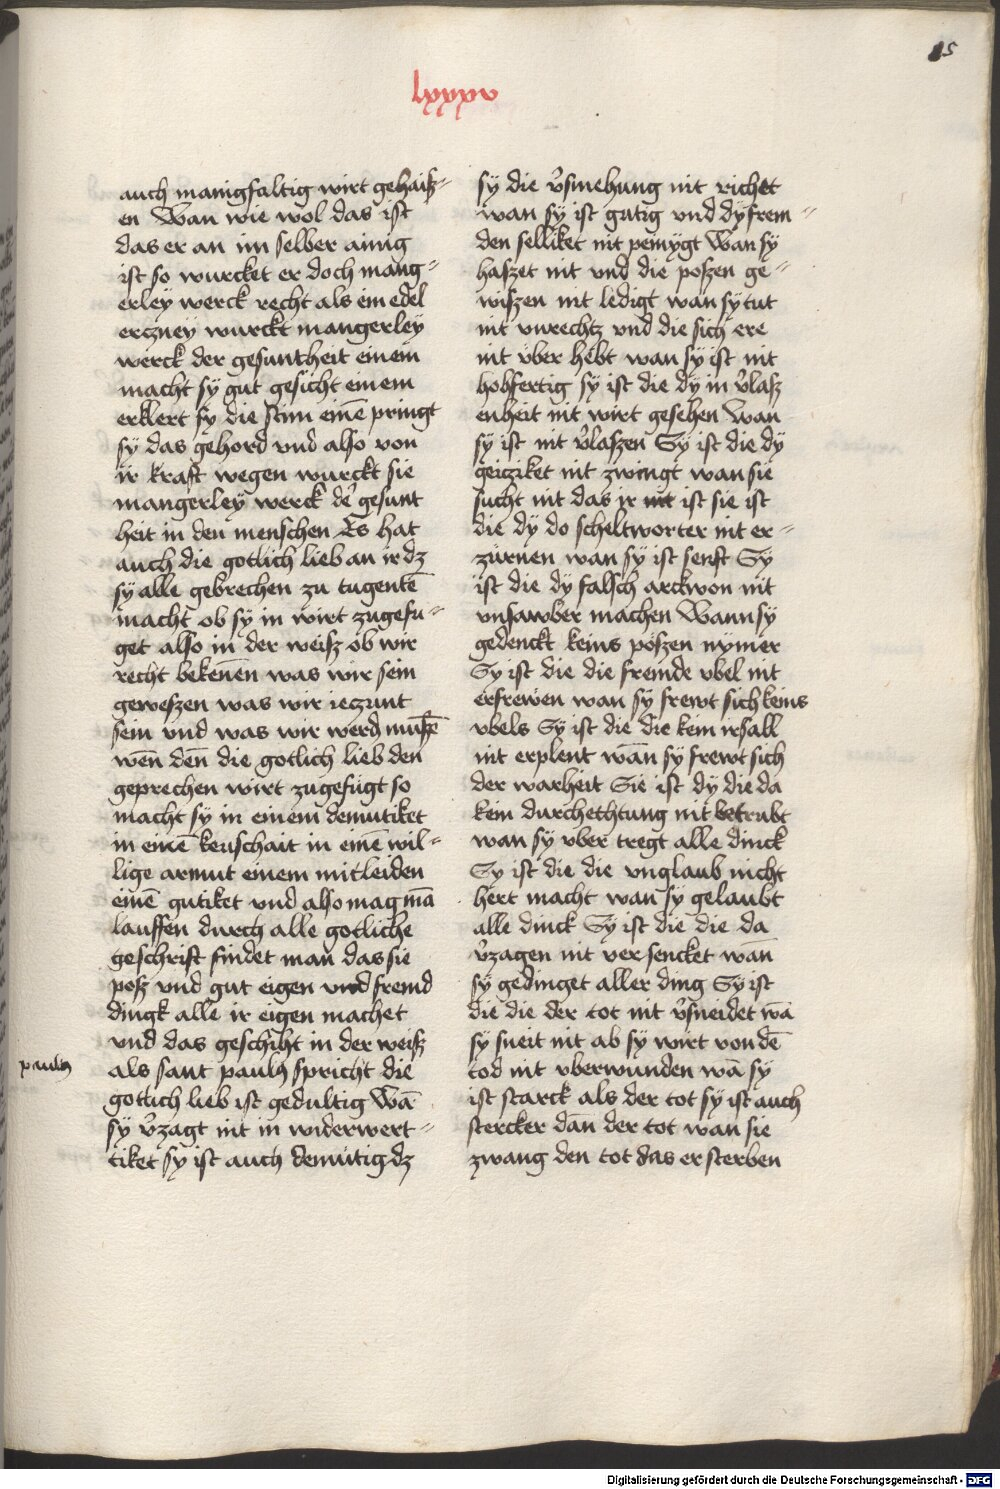 85
lxxxv
auch manigfaltig wirt gehaisz=
en Wan wie wol das ist
das er an im selber ainig
ist so wurcket er doch mang=
erley werck recht als ein edel
erczney wurckt mangerley
werck der gesuntheit einem
macht sy gut gesicht einem
erklert sy die stim einē pringt
sy das gehord vnd also von
ir kraft wegen wurckt sie
mangerley werck dē gesunt
heit in den menschen Es hat
auch die gotlich lieb an ir dz
sy alle gebrechen zu tugentē
macht ob sy in wirt zugefu=
get also in der weisz ob wir
recht bekenēn was wir sein
geweszen was wir ieczunt
sein vnd was wir werd muszē
wēn dēn die gotlich lieb den
geprechen wirt zugefügt so
macht sy in einem demutiket
in einē keuschait in einē wil=
lige armut einem mitleiden
einē gutiket vnd also mag mā
lauffen durch alle gotliche
geschrift findet man das sie
posz vnd gut eigen vnd fremd
dingk alle ir eigen machet
vnd das geschiht in der weisz
paulus
als sant paulus spricht die
gotlich lieb ist gedultig Wā
sy v̉zagt nit in widerwert=
tiket sy ist auch demütig dz
sy die v̉smehung nit richet
wan sy ist gutig vnd dy frem=
den selliket nit pemygt Wan sy
haszet nit vnd die poszen ge=
wiszen nit ledigt wan sy tut
nit vnrechtz vnd die sich ere
nit über hebt wan sy ist nit
hobfertig sy ist die dy in v̉lasz
enheit nit wirt gesehen Wan
sy ist nit v̉laszen Sy ist die dy
geicziket nit zwingt wan sie
sucht nit das ir nit ist sie ist
die dy do scheltworter nit er=
zürnen wan sy ist senft Sy
ist die dy falsch arckwon nit
vnsawber machen Wann sy
gedenckt keins poszen nymer
Sy ist die die fremde vbel nit
erfrewen wan sy frewt sich keins
vbels Sy ist die die kein irsall
nit erplent wān sy frewt sich
der warheit Sie ist dy die da
kein durchechtung nit betrubt
wan sy vber tregt alle dinck
Sy ist die die vnglaub nicht
hert macht wan sy gelaubt
alle dinck Sy ist die die da
v̉zagen nit ver sencket wān
sy gedinget aller ding Sy ist
die die der tot nit v̉sneidet wā
sy sneit nit ab sy wirt von dē
tod nit vberwunden wā sy
ist starck als der tot sy ist auch
stercker dān der tot wan sie
zwang den tot das er sterben
Digitalisierung gefördert durch die Deutsche Forschungsgemeinschaft - DFG